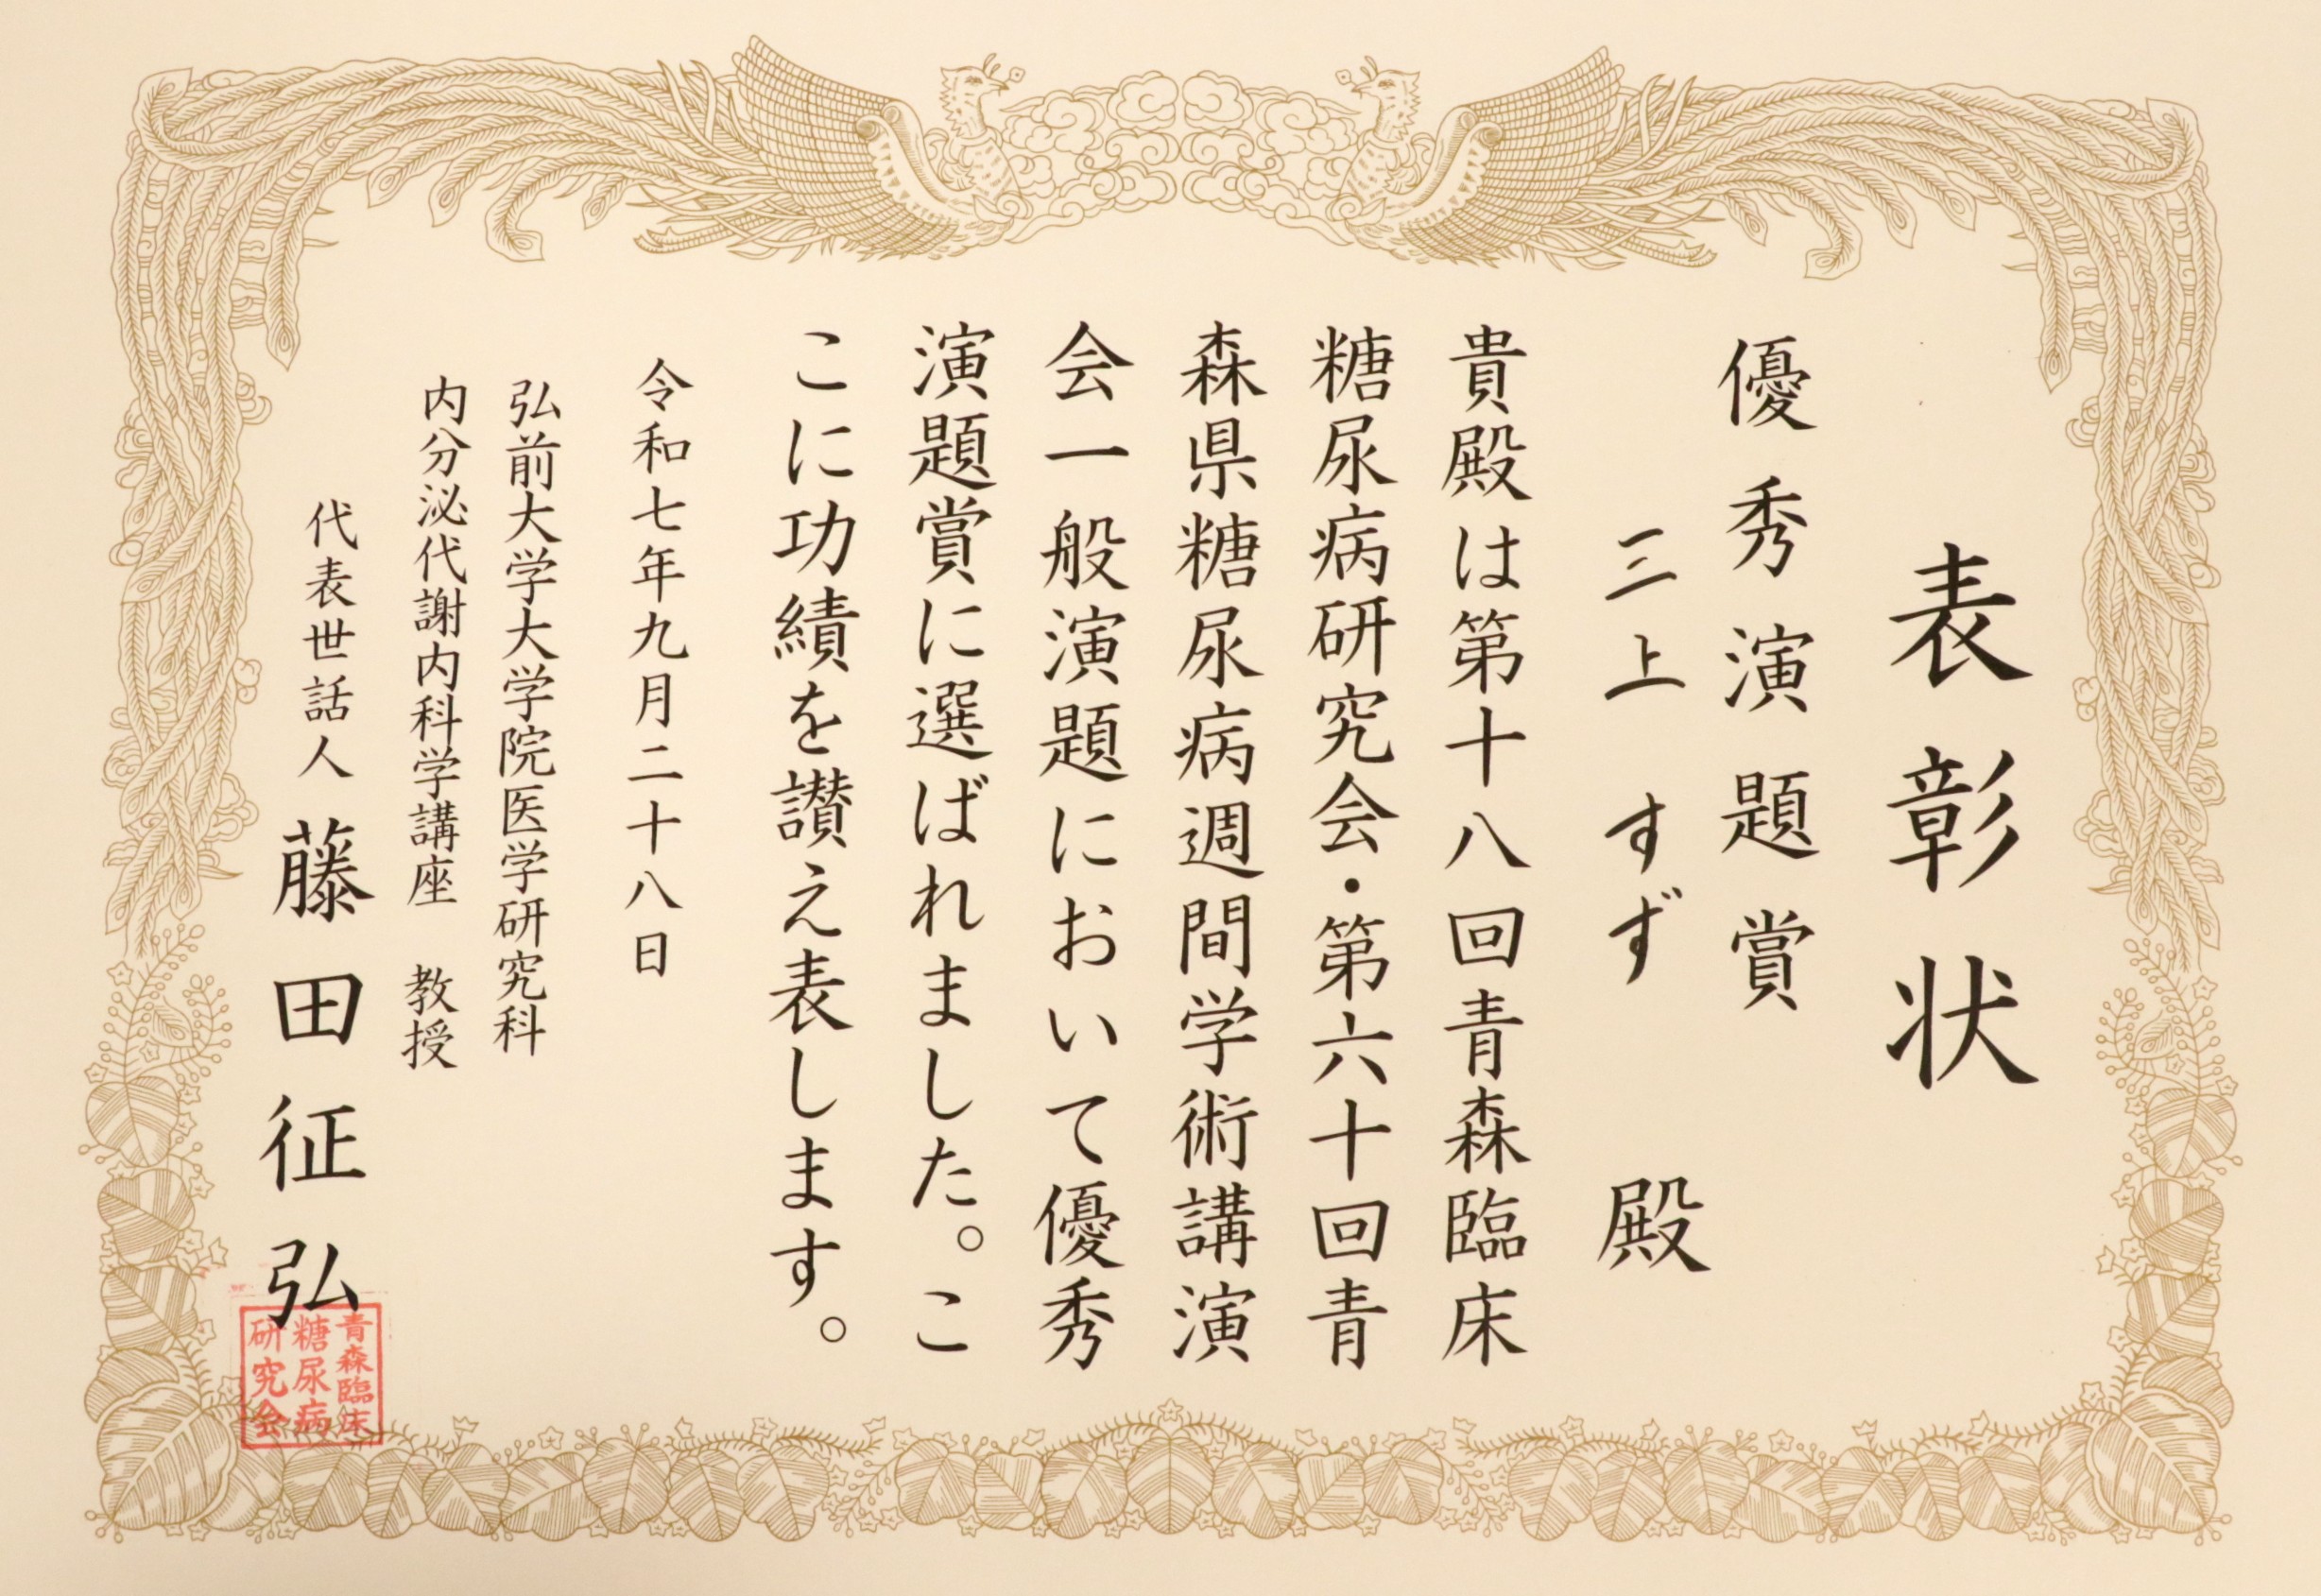 表彰状
優秀演題賞
三上 すず 殿
貴殿は第十八回青森臨床
糖尿病研究会・第六十回青
森県糖尿病週間学術講演
会一般演題において優秀
演題賞に選ばれました。こ
こに功績を讃え表します。
令和七年九月二十八日
弘前大学大学院医学研究科
内分泌代謝内科学講座 教授
代表世話人 藤田征弘
青森臨床
糖尿病
研究会